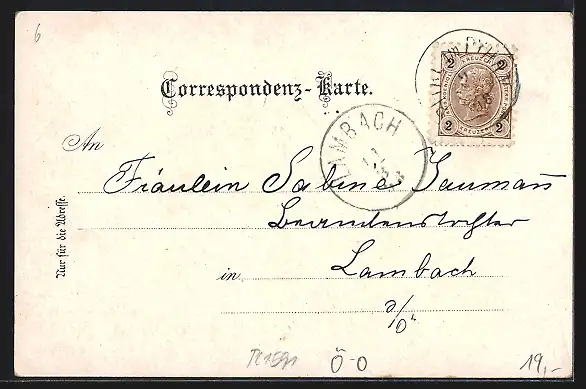 6
Correspondenz-Karte.
2 KREUZER 2
2 2
LAMBACH
An
Fräulein Sabine Baumann
Beamtenstochter
in Lambach
a/
Nur für die Adresse.
Ö-O
19,-